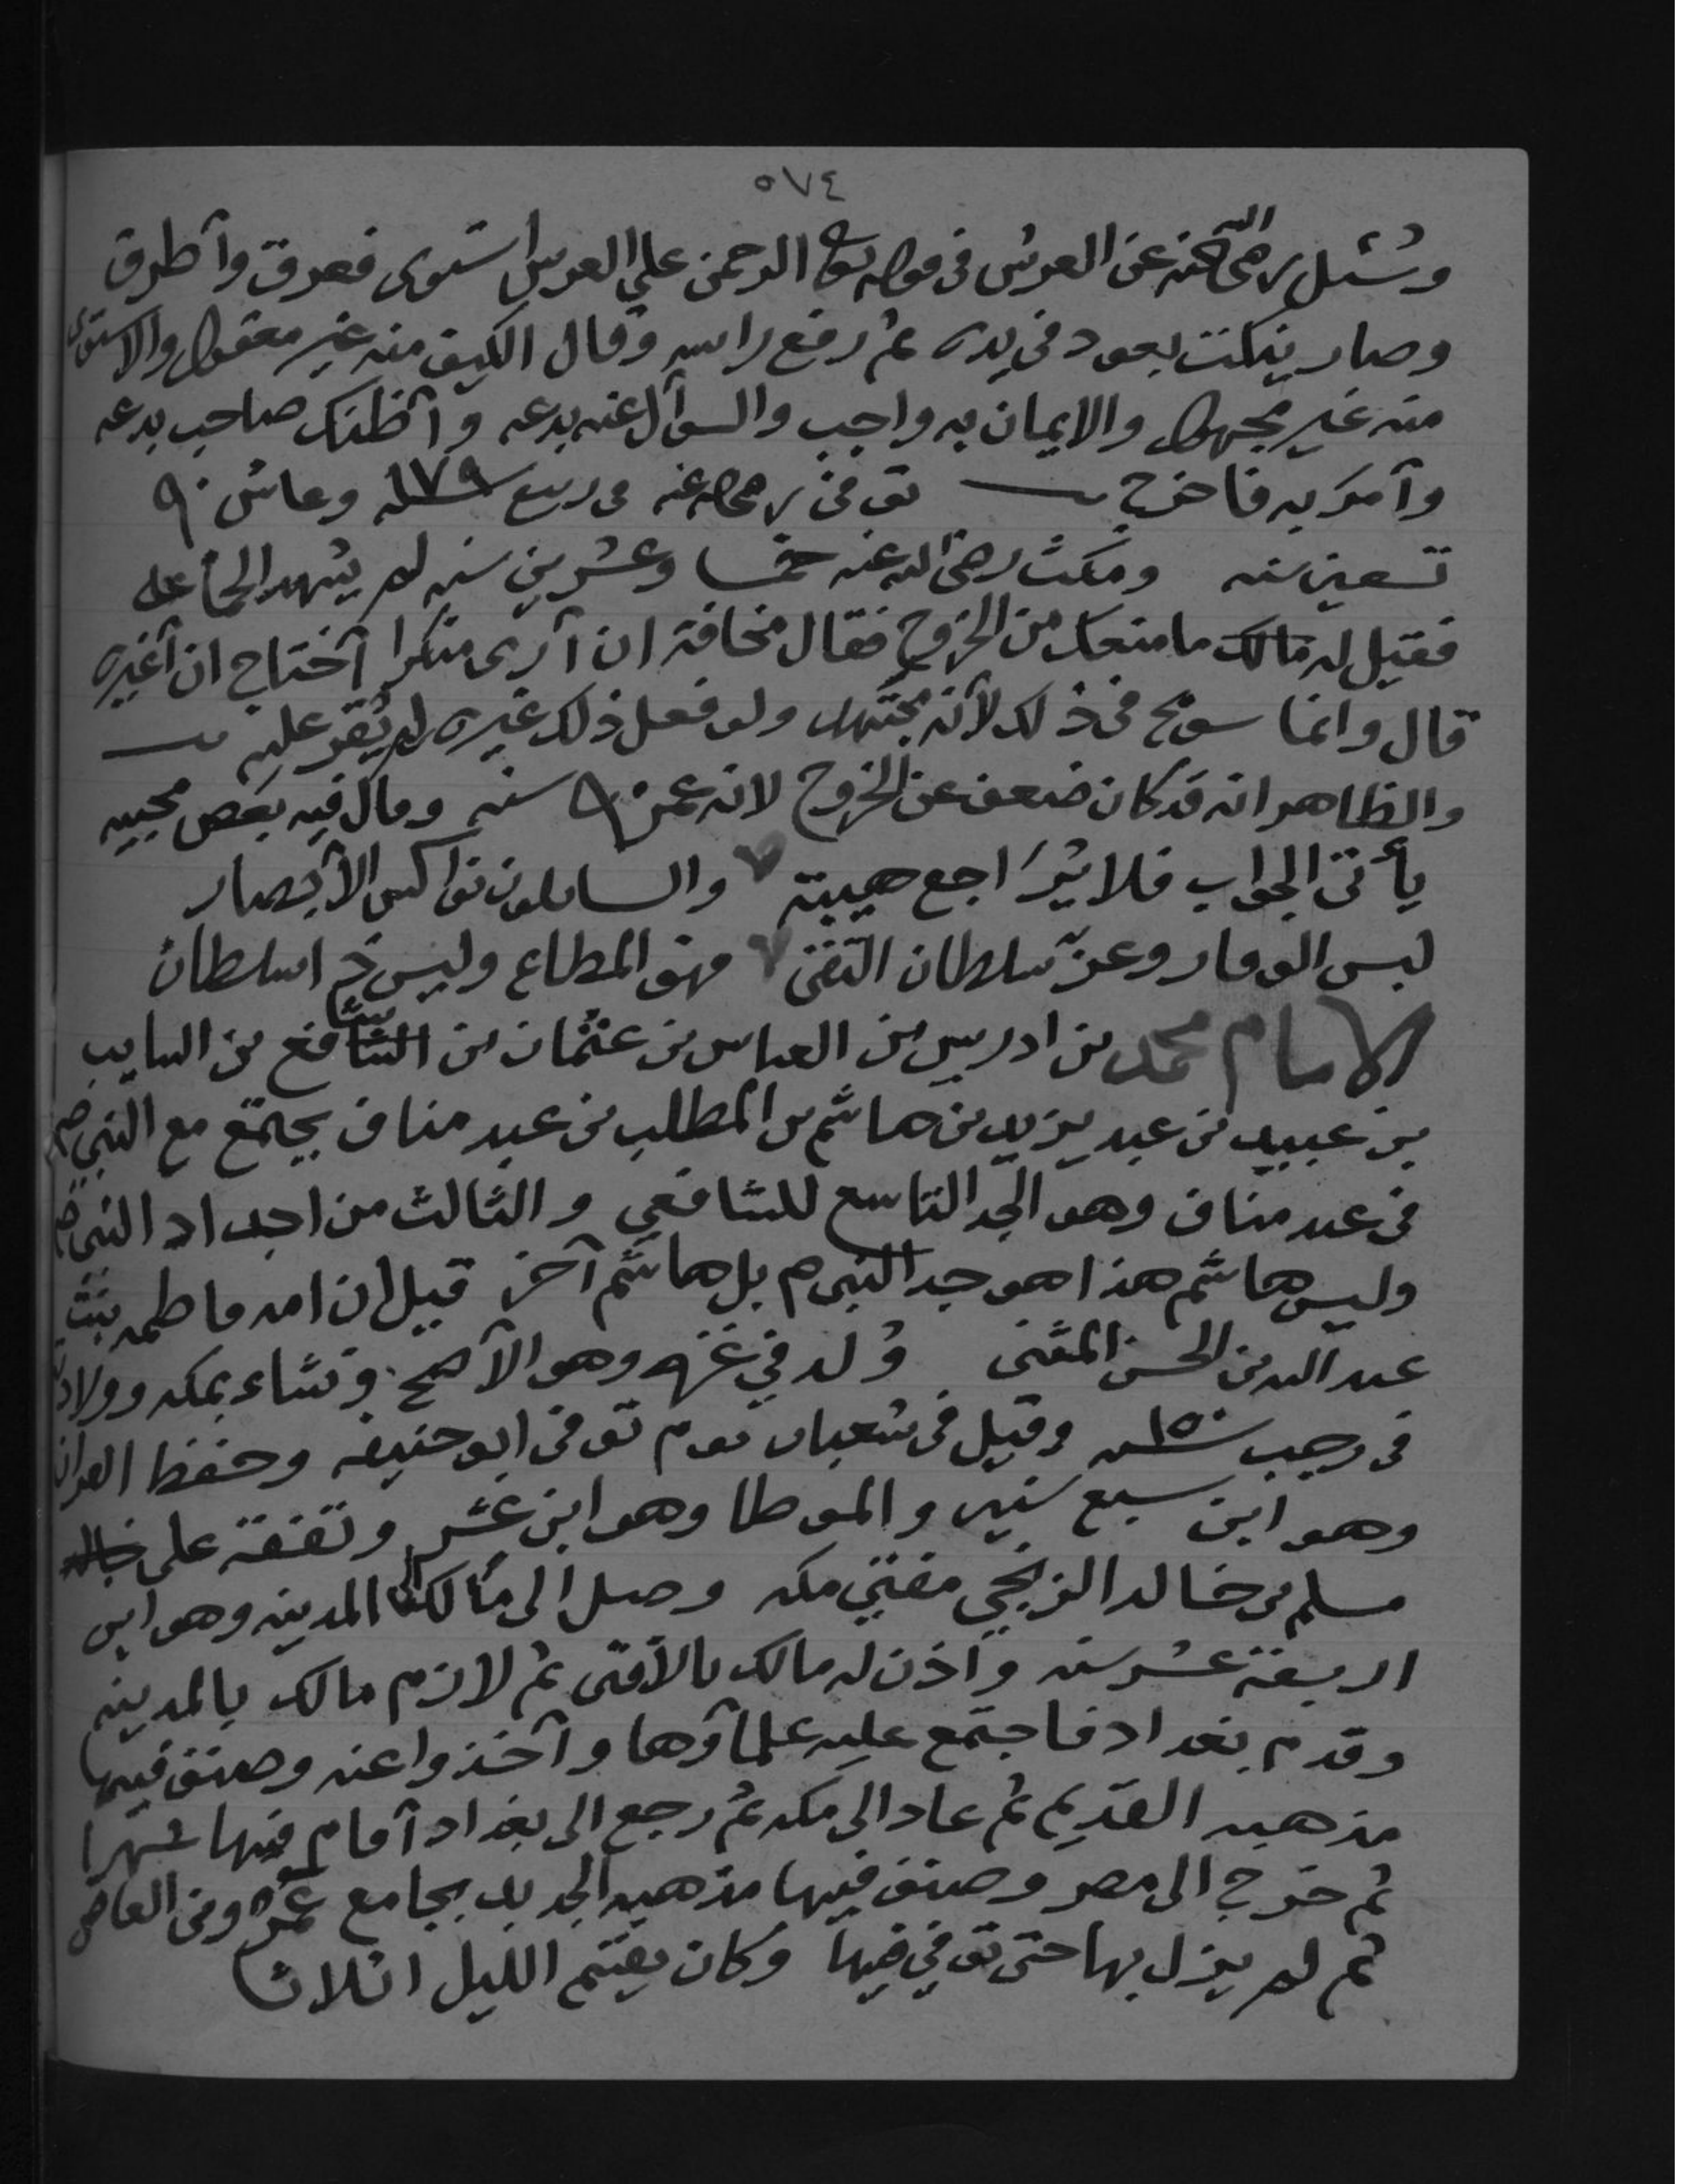 ٥٧٤
وسُئل رضى الله عنه عن العرش فى قوله تعالى الرحمن على العرش استوى فعرق وأطرق
وصار ينكت بعود فى يده ثم رفع راسه وقال الكيف منه غير معقول والاستوى
منه غير مجهول والايمان به واجب والسوآل عنه بدعه وأظنك صاحب بدعه
وآمر به فاخرج توفى رضى الله عنه فى ربيع سنة ١٧٩ وعاش ٩٠
تسعين سنه ومكث رضى الله عنه خمسا وعشرين سنه لم يشهد الجماعه
فقيل له مالك ما منعك من الخروج فقال مخافة ان آرى منكرا آحتاج ان آغيره
قال وانما سومح فى ذلك لأنه مجتهد ولو فعل ذلك غيره لم يُقر عليه
والظاهر انه قد كان ضعف عن الخروج لانه عمر ٩٠ سنه وقال فيه بعض محبيه
يأتى الجواب فلا يُراجع هيبة والسايلون نواكس الأبصار
لبس الوقار وعزّ سلطان التقى فهو المطاع وليس ذا سلطان
الامام محمد بن ادريس بن العباس بن عثمان بن شافع بن السايب
بن عبيد بن عبد يزيد بن هاشم بن المطلب بن عبد مناف يجتمع مع النبى صم
فى عبد مناف وهو الجد التاسع للشافعي والثالث من اجداد النبى صم
وليس هاشم هذا هو جد النبى م بل هاشم آخر قيل ان امه فاطمه بنت
عبد الله بن الحسن المثنى وُلد في غزه وهو الآصح ونشاء بمكه وولادته
فى رجب سنة ١٥٠ وقيل فى شعبان يوم توفى ابو حنيفه وحفظ القران
وهو ابن سبع سنين والموطا وهو ابن عشر وتفقة على خاله
مسلم بن خالد الزنجي مفتي مكه وصل الى مالك الى المدينه وهو ابن
اربعة عشر سنه وآذن له مالك بالأفتى ثم لازم مالك بالمدينه
وقدم بغداد فاجتمع عليه علمآؤها وآخذوا عنه وصنف فيها
مذهبه القديم ثم عاد الى مكه ثم رجع الى بغداد آقام فيها شهرا
ثم خرج الى مصر وصنف فيها مذهبه الجديد بجامع عمرو بن العاص
ثم لم يزل بها حتى توفي فيها وكان يقسم الليل اثلاثا